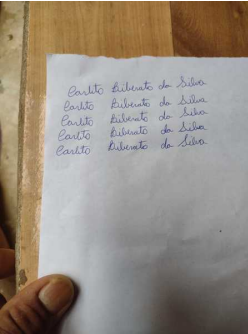 Carlito Biberato da Silva
Carlito Biberato da Silva
Carlito Biberato da Silva
Carlito Biberato da Silva
Carlito Biberato da Silva